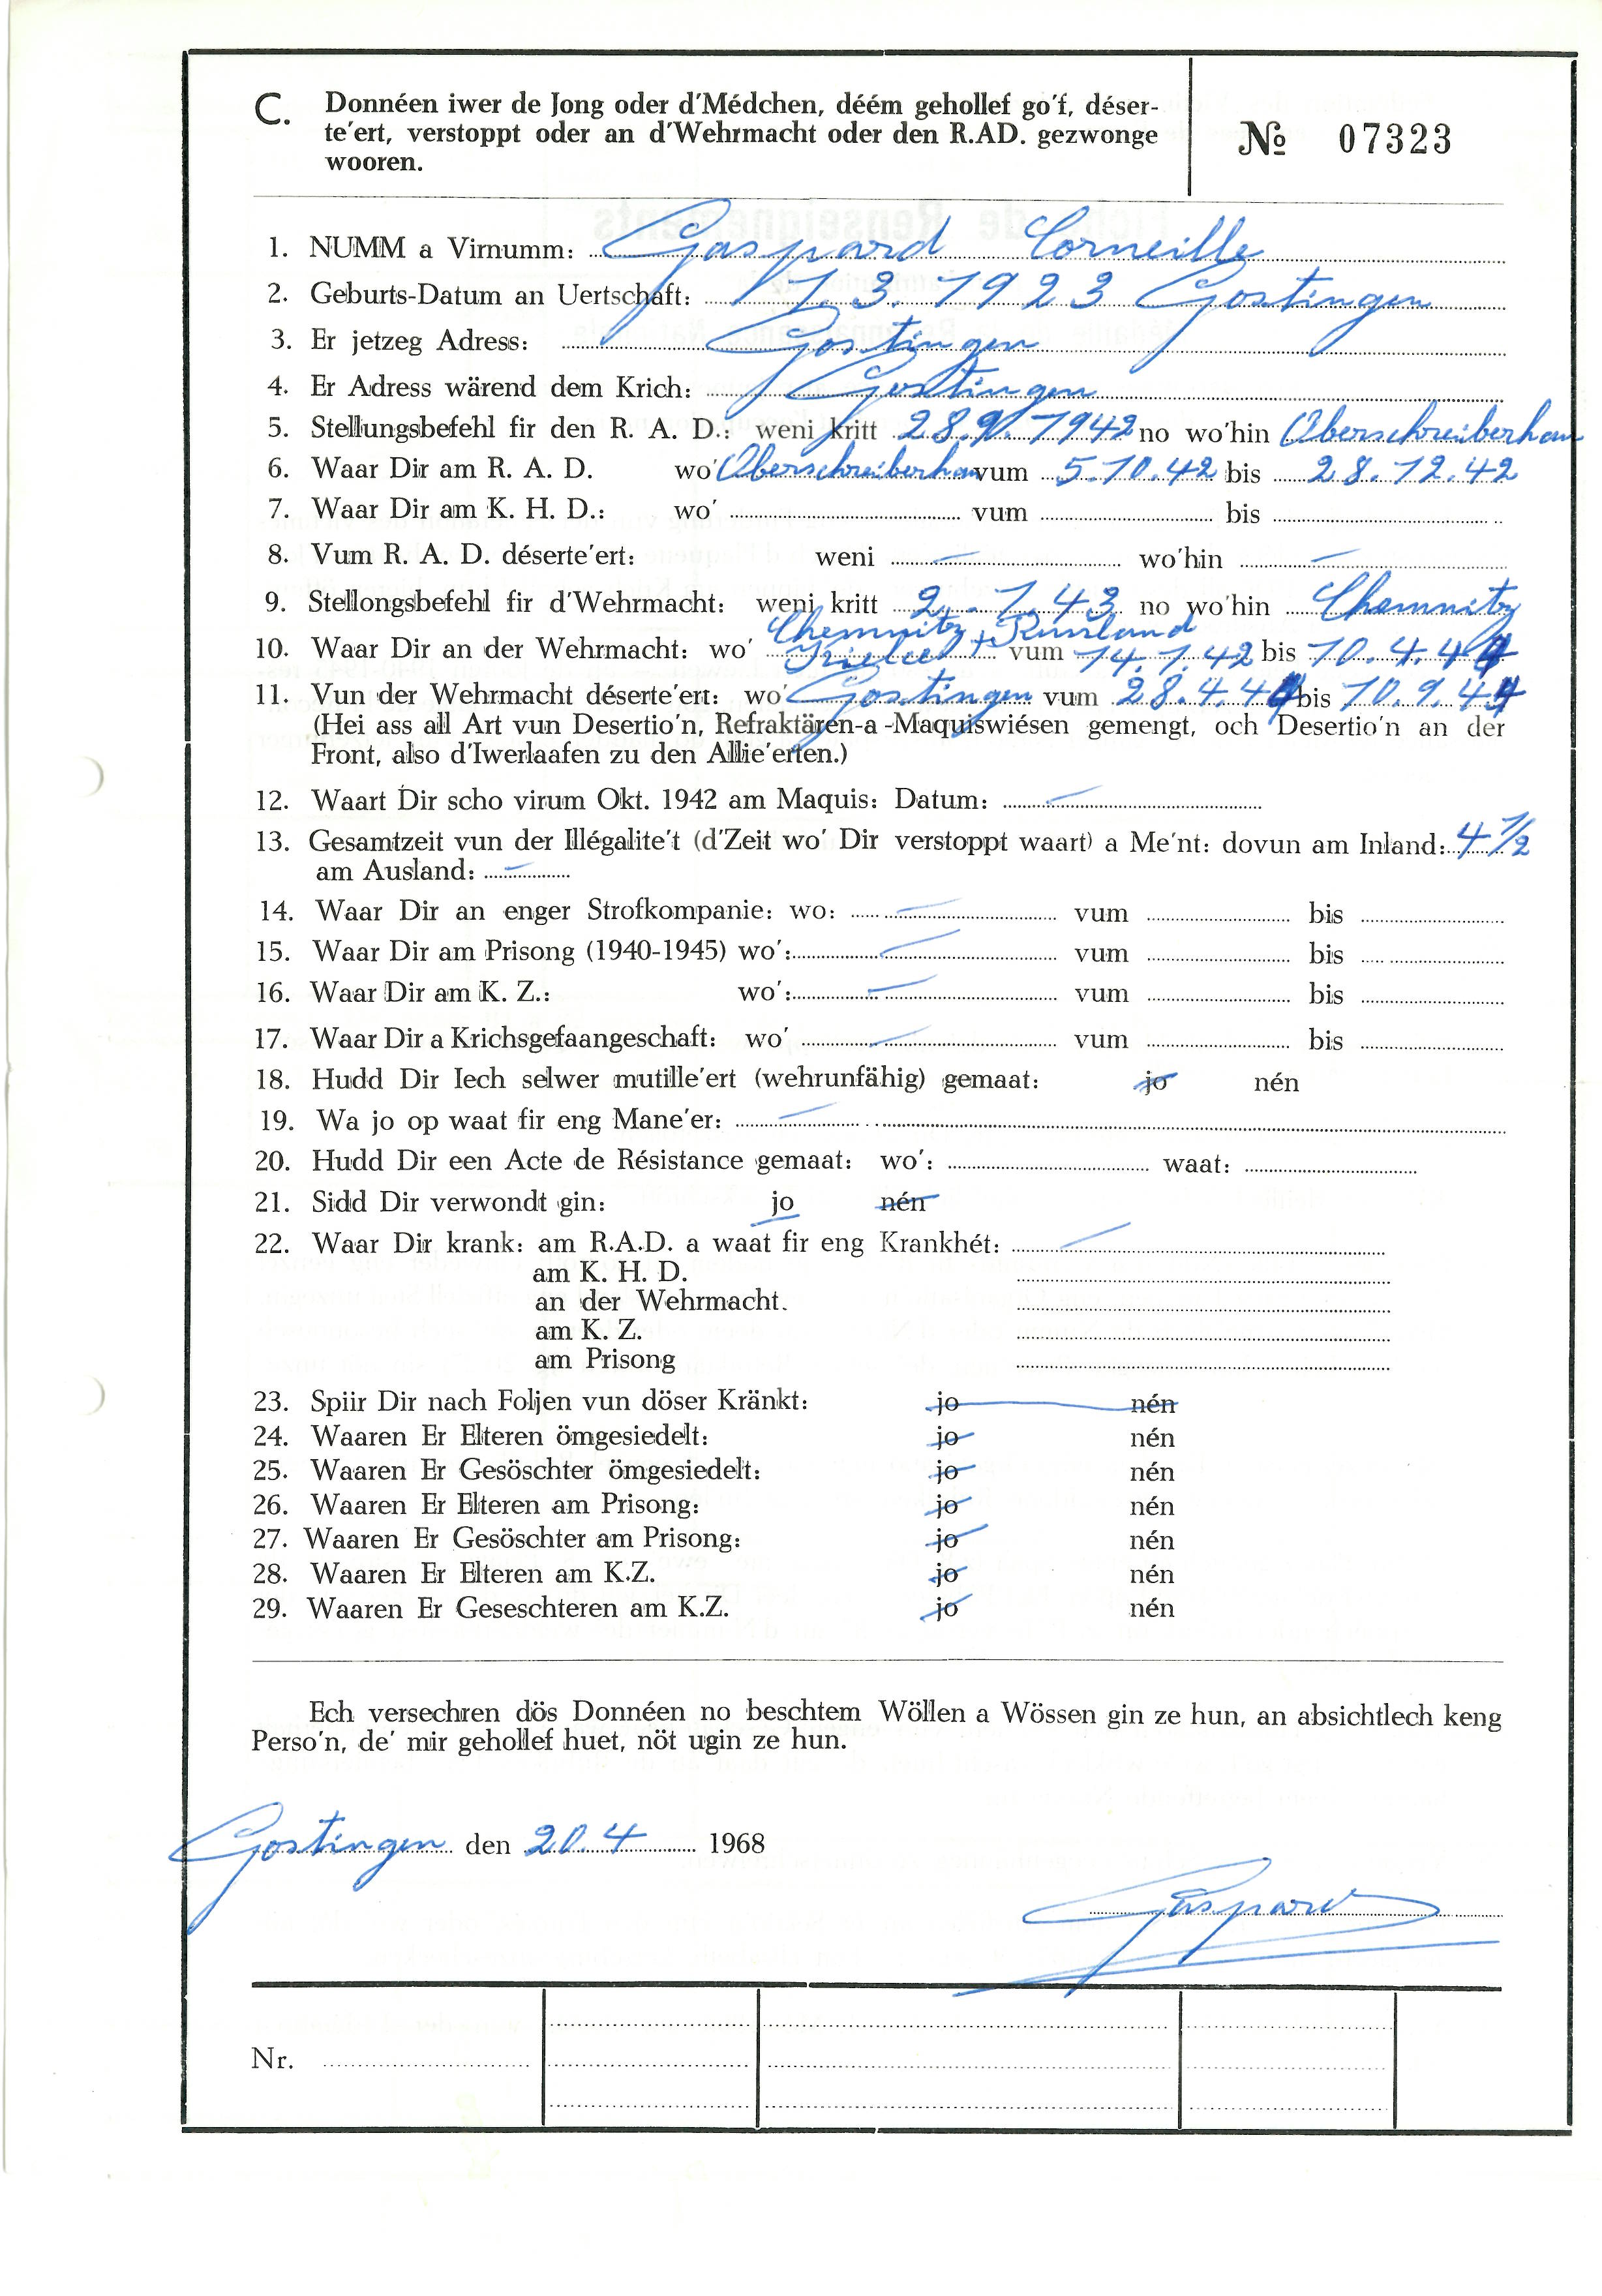 C. Donnéen iwer de Jong oder d'Médchen, déém gehollef go'f, déser-
te'ert, verstoppt oder an d'Wehrmacht oder den R.AD. gezwonge
wooren.
№ 07323
1. NUMM a Virnumm: Gaspard Corneille
2. Geburts-Datum an Uertschaft: 1.3.1923 Gostingen
3. Er jetzeg Adress: Gostingen
4. Er Adress wärend dem Krich: Gostingen
5. Stellungsbefehl fir den R. A. D.: weni kritt 28.9.1942 no wo'hin Oberschreiberhau
6. Waar Dir am R. A. D. wo' Oberschreiberhau vum 5.10.42 bis 28.12.42
7. Waar Dir am K. H. D.: wo' vum bis
8. Vum R. A. D. déserte'ert: weni — wo'hin —
9. Stellongsbefehl fir d'Wehrmacht: weni kritt 2.1.43 no wo'hin Chemnitz
Chemnitz + Russland
10. Waar Dir an der Wehrmacht: wo' vum 14.1.42 bis 10.4.44
11. Vun der Wehrmacht déserte'ert: wo' Gostingen vum 28.4.44 bis 10.9.44
(Hei ass all Art vun Desertio'n, Refraktären-a-Maquiswiésen gemengt, och Desertio'n an der
Front, also d'Iwerlaafen zu den Allie'erten.)
12. Waart Dir scho virum Okt. 1942 am Maquis: Datum: —
13. Gesamtzeit vun der Illégalite't (d'Zeit wo' Dir verstoppt waart) a Me'nt: dovun am Inland: 4 1/2
am Ausland: —
14. Waar Dir an enger Strofkompanie: wo: — vum bis
15. Waar Dir am Prisong (1940-1945) wo': — vum bis
16. Waar Dir am K. Z.: wo': — vum bis
17. Waar Dir a Krichsgefaangeschaft: wo' — vum bis
18. Hudd Dir Iech selwer mutille'ert (wehrunfähig) gemaat: jo nén
19. Wa jo op waat fir eng Mane'er: —
20. Hudd Dir een Acte de Résistance gemaat: wo': waat:
21. Sidd Dir verwondt gin: jo nén
22. Waar Dir krank: am R.A.D. a waat fir eng Krankhét: —
am K. H. D.
an der Wehrmacht.
am K. Z.
am Prisong
23. Spiir Dir nach Foljen vun döser Kränkt: jo nén
24. Waaren Er Elteren ömgesiedelt: jo nén
25. Waaren Er Gesöschter ömgesiedelt: jo nén
26. Waaren Er Elteren am Prisong: jo nén
27. Waaren Er Gesöschter am Prisong: jo nén
28. Waaren Er Elteren am K.Z. jo nén
29. Waaren Er Geseschteren am K.Z. jo nén
Ech versechren dös Donnéen no beschtem Wöllen a Wössen gin ze hun, an absichtlech keng
Perso'n, de' mir gehollef huet, nöt ugin ze hun.
Gostingen den 20.4 1968
Gaspard
Nr.